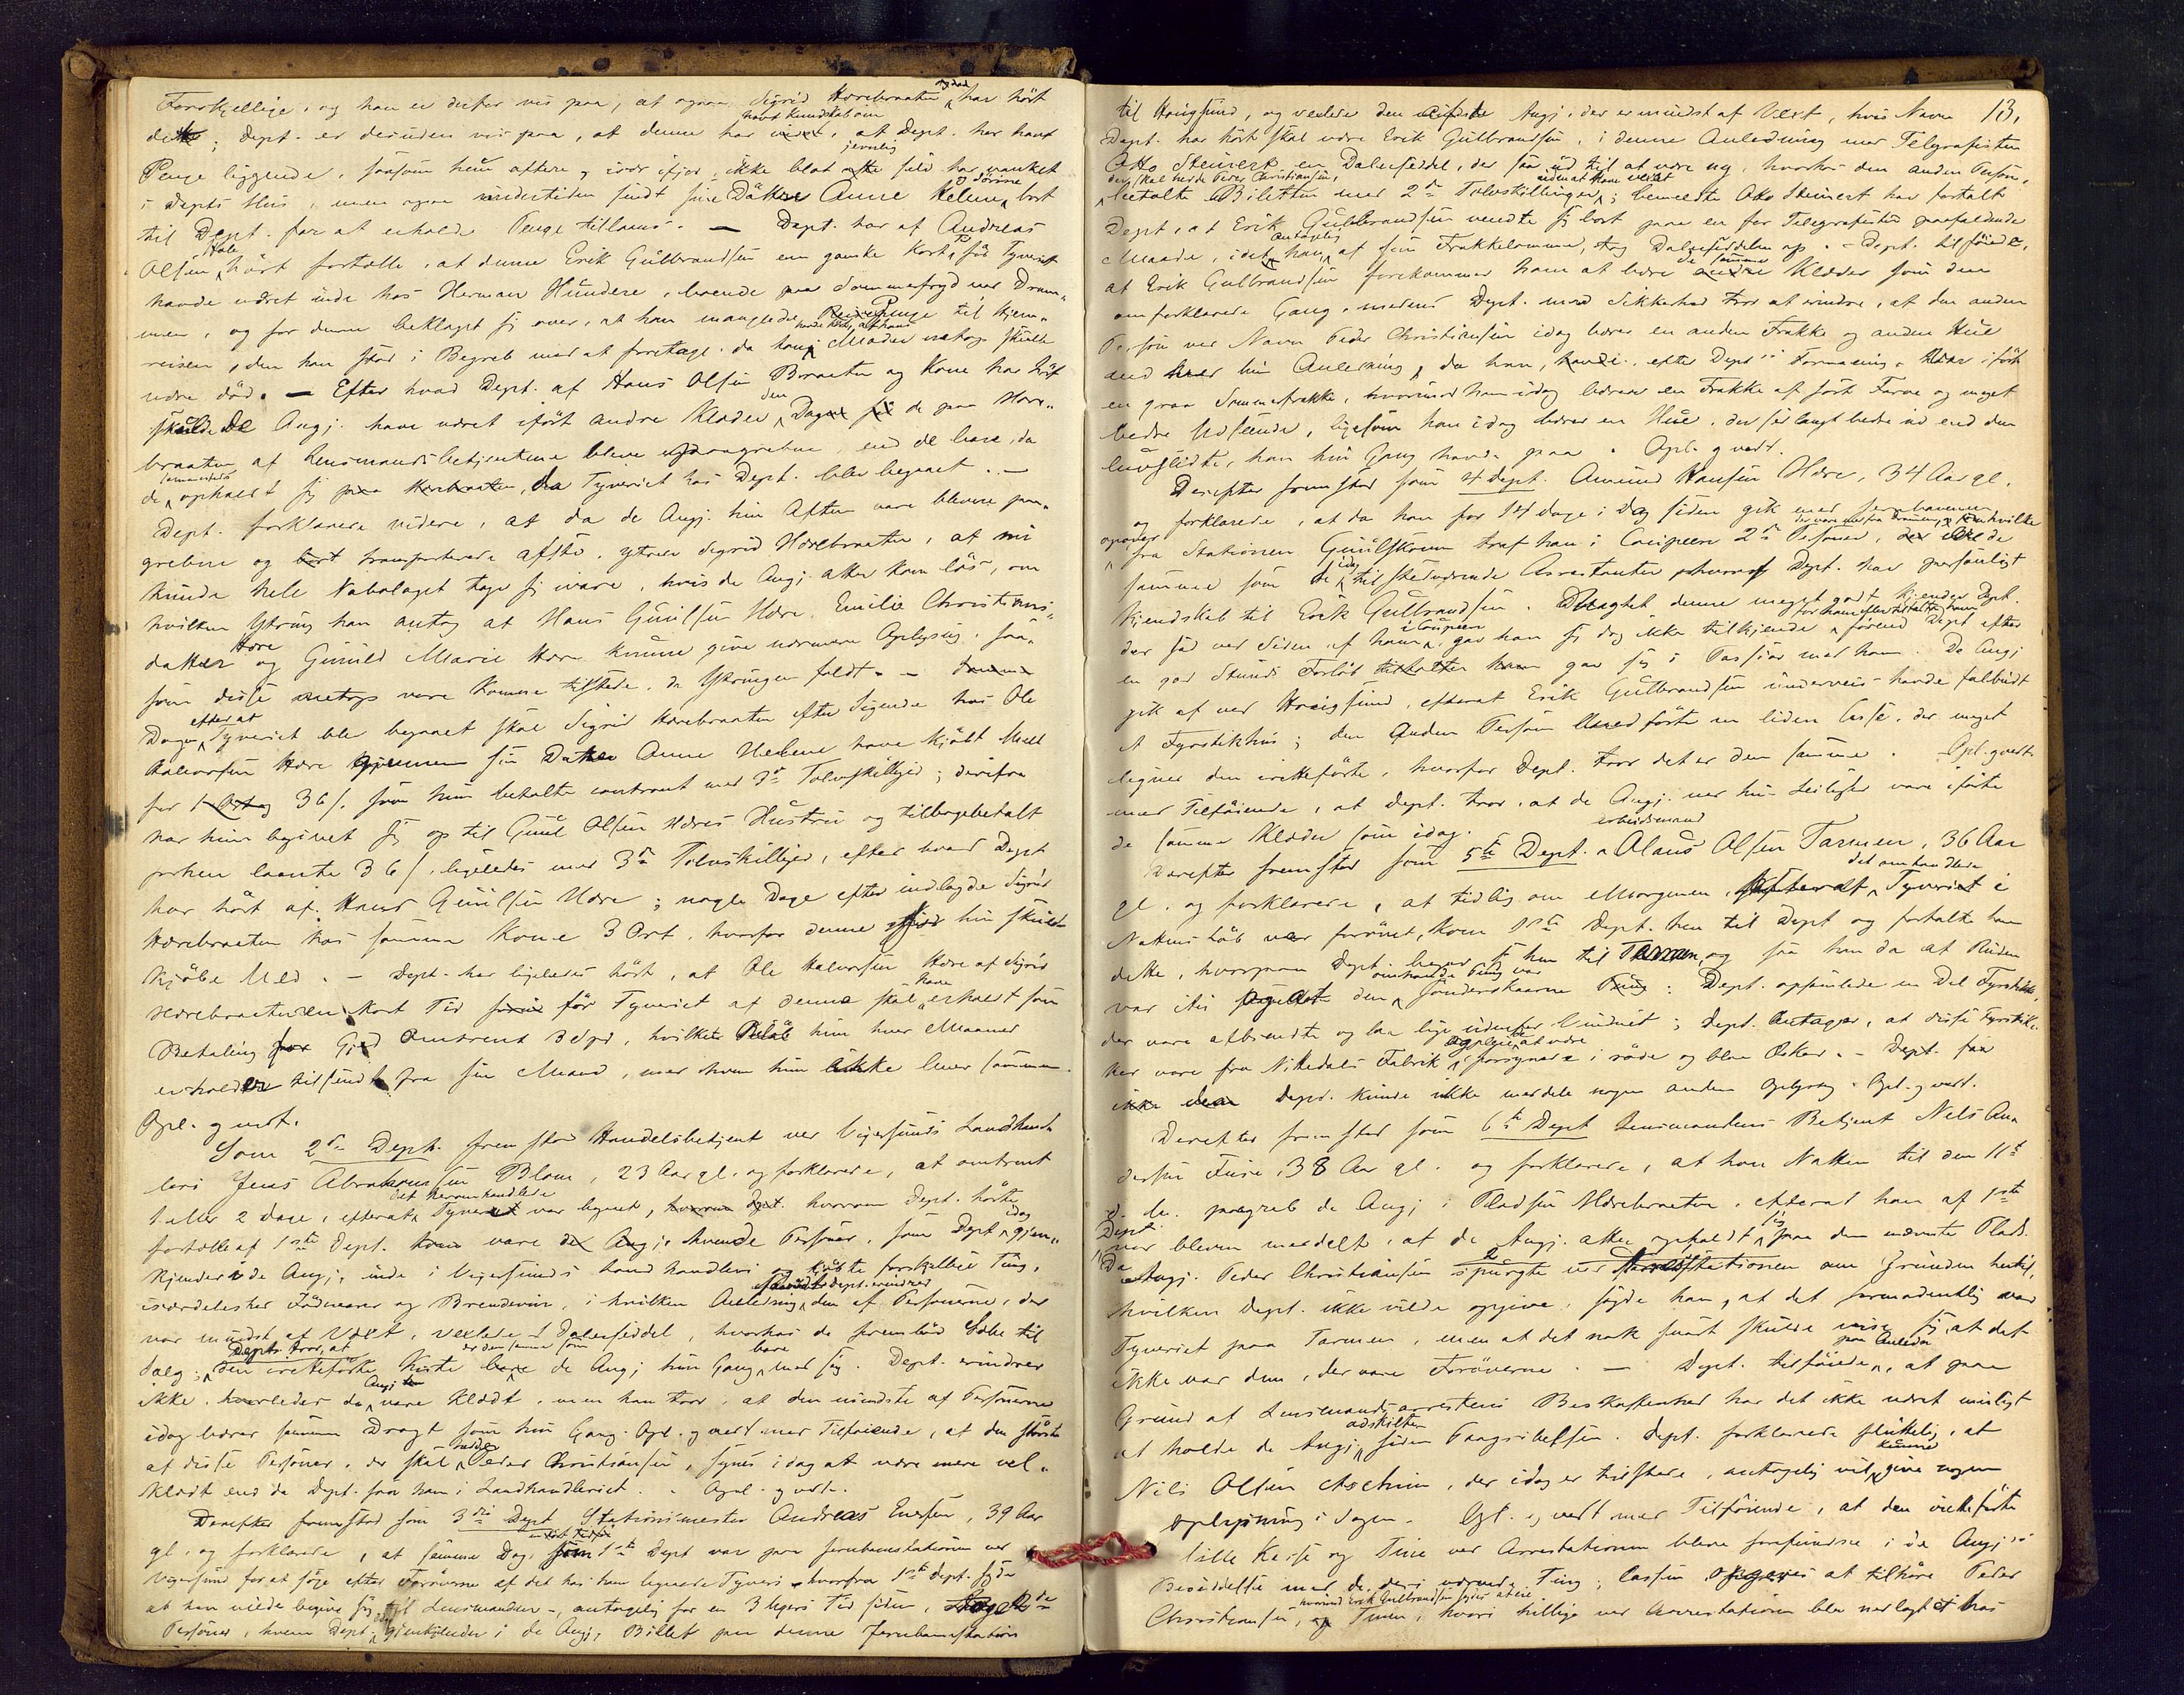 Forskjellige, og han er derfor vis paa, at ogsaa Sigrid Horebraaten har hørt
dette; Dept. er desuden vis paa, at denne har havt Kundskab om, at Dept. har havt
Penge liggende, saasom hun oftere, især ifjor, ikke blot jevnlig selv har vanket
i Depts Hus, men ogsaa undertiden sendt sine Døttre Anne Helene og Dorine bort
til Dept. for at erholde Penge tillaans. — Dept. har af Andreas
Olsen Hole hørt fortælle, at denne Erik Gulbrandsen en ganske kort Tid før Tyveriet
havde været inde hos Herman Hundere, boende paa Sommerfryd ved Dram-
men, og for denne beklaget sig over, at han manglede Penge til Hjem-
reisen, den han stod i Begreb med at foretage, da hans Moder netop skulde
være død. — Efter hvad Dept. af Hans Olsen Braaten og Kone har hørt
skulde de Angj. have været iført andre Klæder den Dag de paa Hore-
braaten af Lensmandsbetjentene bleve paagrebne, end de bare, da
de opholdt sig paa Horebraaten, da Tyveriet hos Dept. blev begaaet. —
Dept. forklarede videre, at da de Angj. hin Aften vare blevne paa-
grebne og bort transporterede afsted, ytrede Sigrid Horebraaten, at nu
kunde hele Nabolaget tage sig ivare, hvis de Angj. atter kom løs, om
hvilken Ytring han antog at Hans Gulsen Hore, Emilie Christians-
datter Hore og Gunild Marie Hore kunne give nærmere Oplysning, saa-
som disse netop vare komne tilstede, da Ytringen faldt. —
Dagen efter at Tyveriet blev begaaet skal Sigrid Horebraaten efter Sigende hos Ole
Halvorsen Hore gjennem sin Datter Anne Helene have kjøbt Meel
for 36 s. som hun betalte contant med 3de Tolvskilling; derifra
har hun begivet sig op til Guul Olsen Hores Hustru og tilbagebetalt
patien laante 36 s, ligeledes med 3de Tolvskilling, efter hvad Dept
har hørt af Hans Gulsen Hore; nogle Dage efter indlagde Sigrid
Horebraaten hos samme Kone 3 Ort, hvorfor denne hin skulde
kjøbe Uld. — Dept. har ligeledes hørt, at Ole Halvorsen Hore af Sigrid
Horebraaten kort Tid før Tyveriet af denne skal have erholdt som
Betaling for Gjæld omtrent 3 Spd, hvilket Beløb hun hver Maaned
erholder tilsendt fra sin Mand, med hvem hun ikke lever sammen.
Opl. og vedt.
Som 2den Dept. fremstod Handelsbetjent ved Vigersunds Landhand-
leri Jens Abrahamsen Blom, 23 Aar gl. og forklarede, at omtrent
1 eller 2 Dage, efterat det heromhandlede Tyveri var begaaet, hvorom Dept. hørte
fortælle af 1ste Dept. vare tvende Personer, som Dept idag gjen-
kjender i de Angj., inde i Vigersunds Landhandleri og kjøbte forskjellige Ting,
isærdeleshed Fødevarer og Brændeviin, i hvilken Anledning Dept. erindrer den af Personerne, der
var mindst af Vext, vexlede 1 Dalerseddel, hvorhos de frembød Sæbe til
Salg; Dept. tror, at den iretteførte Kiste er den samme som de Angj. hin Gang bare med sig. Dept. erindrer
ikke, hvorledes de Angj. vare klædt, men han tror, at den mindste af Personerne
idag bærer samme Dragt som hin Gang. Opl. og vedt. med Tilføiende, at den største
af disse Personer, der skal hedde Peder Christiansen, synes idag at være mere vel-
klædt end da Dept. saa ham i Landhandleriet. — Opl. og vedt.
Derefter fremstod som 3die Dept Stationsmester Andreas Enersen, 39 Aar
gl. og forklarede, at samme Dag som 1ste Dept var paa Jernbanestationen ved
Vigersund for at søge efter Forøverne af det hos ham begaaede Tyveri, hvorfra 1ste Dept. sagde
at han vilde begive sig til Lensmanden –, antagelig for en 3 Ugers Tid siden, tog 2de
Personer, hvem Dept. idag gjenkjender i de Angj., Billet paa denne Jernbanestation
13.
til Haugsund, og vexlede den mindste Angj., der er mindst af Vext, hvis Navn
Dept. har hørt skal være Erik Gulbrandsen, i denne Anledning med Telegrafisten
Otto Steinert en Dalerseddel, der saa ud til at være ny, hvorhos den anden Person,
der skal hedde Peder Christiansen, betalte Billetten med 2de Tolvskillinger; bemeldte Otto Steinert har fortalt
Dept, at Erik Gulbrandsen vendte sig bort paa en for Telegrafisten paafaldende
Maade, idet han antagelig af sin Frakkelomme, tog Dalerseddelen op. – Dept. tilføiede,
at Erik Gulbrandsen forekommer ham at bære de samme Klæder som den
omforklarede Gang, medens Dept. med Sikkerhed tror at erindre, at den anden
Person ved Navn Peder Christiansen idag bærer en anden Frakke og anden Hue
end ved hin Anledning, da han, efter Depts Formening var iført
en graa Sommerfrakke, hvorimod han idag bærer en Frakke af sort Farve og meget
bedre Udseende, ligesom han idag bærer en Hue, der ser langt bedre ud end den
luvslidte, han hin Gang havde paa. Opl. og vedt.
Derefter fremstod som 4 Dept. Amund Hansen Hore, 34 Aar gl.
og forklarede, at da han for 14 Dage i Dag siden gik med Jernbanen
opover fra Stationen Gulskoven traf han i Coupeen 2de Personer, der vare med fra Drammen,
samme som de idag tilstedeværende Arrestanter, hvoraf Dept. har personligt
Kjendskab til Erik Gulbrandsen. Uagtet denne meget godt kjender Dept.
der sad ved Siden af ham i Coupeen, gav han sig dog ikke tilkjende for ham eller tiltalte ham førend Dept efter
en god Stunds Forløb gav sig i Passiar med ham. De Angj.
gik af ved Haugsund, efterat Erik Gulbrandsen underveis havde falbudt
et Fyrstikhus; den anden Person medførte en liden Casse, der meget
ligner den iretteførte, hvorfor Dept. tror det er den samme. – Opl. og vedt.
med Tilføiende, at Dept. tror, at de Angj. ved hin Leilighed vare iførte
de samme Klæder som idag.
Derefter fremstod som 5te Dept. Arbeidsmand Olaus Olsen Tarmen, 36 Aar
gl. og forklarede, at tidlig om Morgenen, efterat det omhandlede Tyveri i
Nattens Løb var forøvet, kom 1ste Dept. hen til Dept og fortalte ham
dette, hvorpaa Dept. begav sig hen til Tarmen, og saa han da at Ruden
var itu og at den sønderskaarne Pung: Dept. opsamlede en Del Fyrstikker,
der vare afbrændte og laa lige udenfor Vinduet; Dept. antager, at disse Fyrstik-
ker vare fra Nitedals Fabrik, der pleier at være forsynede i røde og blaa Æsker. – Dept. saa
ikke. Dept. kunde ikke meddele nogen anden Oplysning. Opl. og vedt.
Derefter fremstod som 6te Dept Lensmandens Betjent Nels An-
dersen Fure, 38 Aar gl. og forklarede, at han Natten til den 11te
d. M. paagreb de Angj. i Pladsen Horebraaten, efterat han af 1ste
Dept. var bleven meddelt, at de Angj. atter opholdt sig paa den nævnte Plads.
Da Angj. Peder Christiansen spurgte ved Arrestationen om Grunden hertil,
hvilken Dept. ikke vilde opgive, sagde han, at det formodentlig var
Tyveriet paa Tarmen, men at det nok snart skulde vise sig, at det
ikke var dem, der vare Forøverne. — Dept. tilføiede paa Anledn., at paa
Grund af Lensmandsarrestens Beskaffenhed har det ikke været muligt
at holde de Angj. adskilte siden Paagribelsen. Dept. forklarede sluttelig, at
Nils Olsen Aschim, der idag er tilstede, antagelig vil kunne give nogen
Oplysning i Sagen. Opl. og vedt med Tilføiende, at den iretteførte
lille Kasse og Tine ved Arrestationen bleve forefundne i de Angj.s
Besiddelse med de deri værende Ting; Cassen opgives at tilhøre Peder
Christiansen, hvorimod Erik Gulbrandsen siges at eie Tinen, hvori hellige ved Arrestationen blev nedlagt et hos